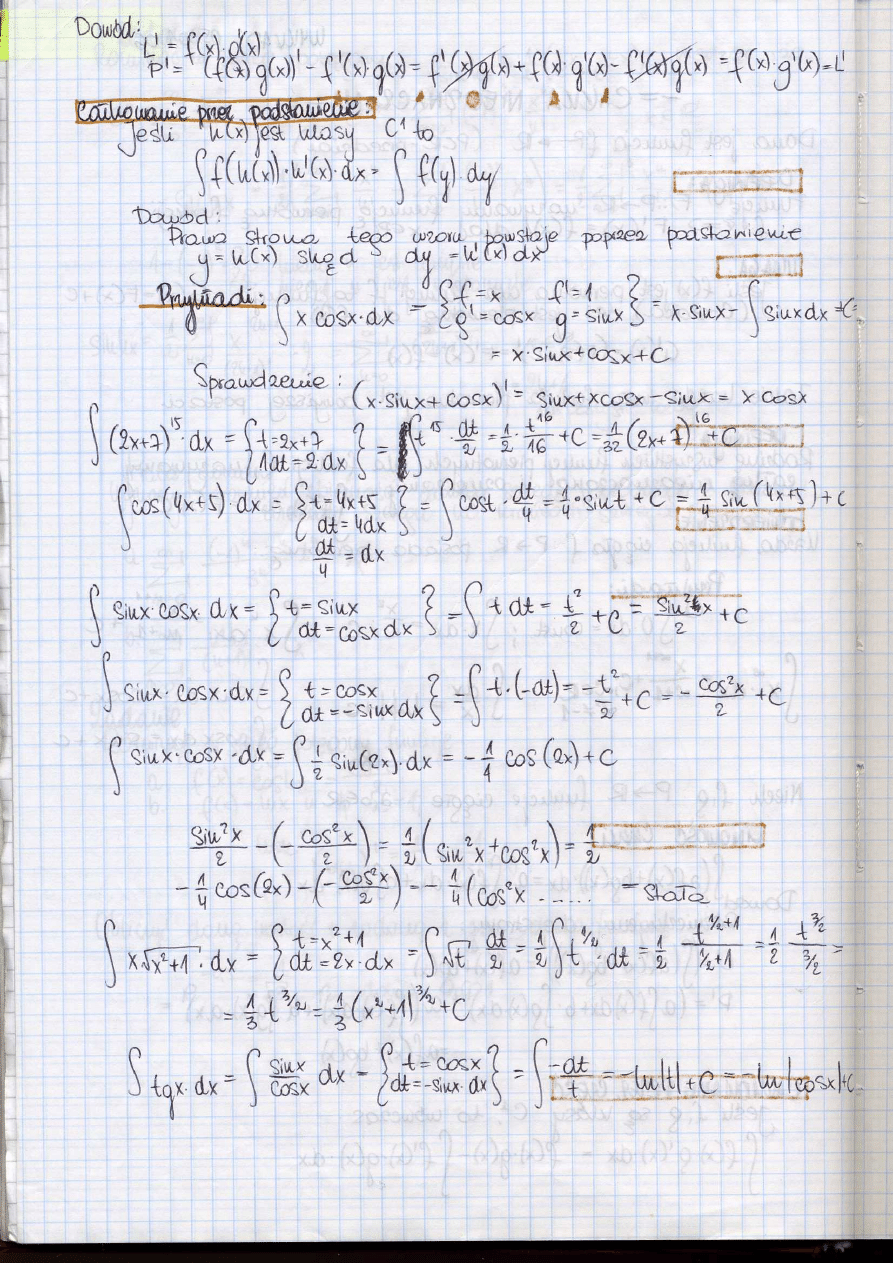 Dowód:
L' = f(x)·g'(x)
P' = (f(x) g(x))' - f'(x)·g(x) = f'(x) g(x) + f(x)·g'(x) - f'(x) g(x) = f(x)·g'(x) = L'
Całkowanie przez podstawienie:
Jeśli h(x) jest klasy C¹ to
∫ f(h(x))·h'(x)·dx = ∫ f(y) dy
Dowód:
Prawa strona tego wzoru powstaje poprzez podstawienie
y = h(x) skąd dy = h'(x) dx
Przykładi:
∫ x cosx·dx = { f = x f' = 1 g' = cosx g = sinx } = x·sinx - ∫ sinx dx + C =
= x·sinx + cosx + C
Sprawdzenie: (x·sinx + cosx)' = sinx + xcosx - sinx = x cosx
∫ (2x+7)¹⁵·dx = { t = 2x+7 1dt = 2·dx } = ∫ t¹⁵·dt/2 = 1/2·t¹⁶/16 + C = 1/32 (2x+7)¹⁶ + C
∫ cos(4x+5)·dx = { t = 4x+5 dt = 4dx } = ∫ cost·dt/4 = 1/4·sint + C = 1/4 sin(4x+5) + C
dt/4 = dx
∫ sinx·cosx·dx = { t = sinx dt = cosx dx } = ∫ t dt = t²/2 + C = sin²x/2 + C
∫ sinx·cosx·dx = { t = cosx dt = -sinx dx } = ∫ t·(-dt) = -t²/2 + C = -cos²x/2 + C
∫ sinx·cosx·dx = ∫ 1/2 sin(2x)·dx = -1/4 cos(2x) + C
sin²x/2 - (-cos²x/2) = 1/2 (sin²x + cos²x) = 1/2
-1/4 cos(2x) - (-cos²x/2) = -1/4 (cos²x ...... = stała
∫ x√(x²+1)·dx = { t = x²+1 dt = 2x·dx } = ∫ √t dt/2 = 1/2 ∫ t^(1/2)·dt = 1/2 t^(1/2+1)/(1/2+1) = 1/2 t^(3/2)/(3/2) =
= 1/3 t^(3/2) = 1/3 (x²+1)^(3/2) + C
∫ tgx·dx = ∫ sinx/cosx dx = { t = cosx dt = -sinx·dx } = ∫ -dt/t = -ln|t| + C = -ln|cosx| + C